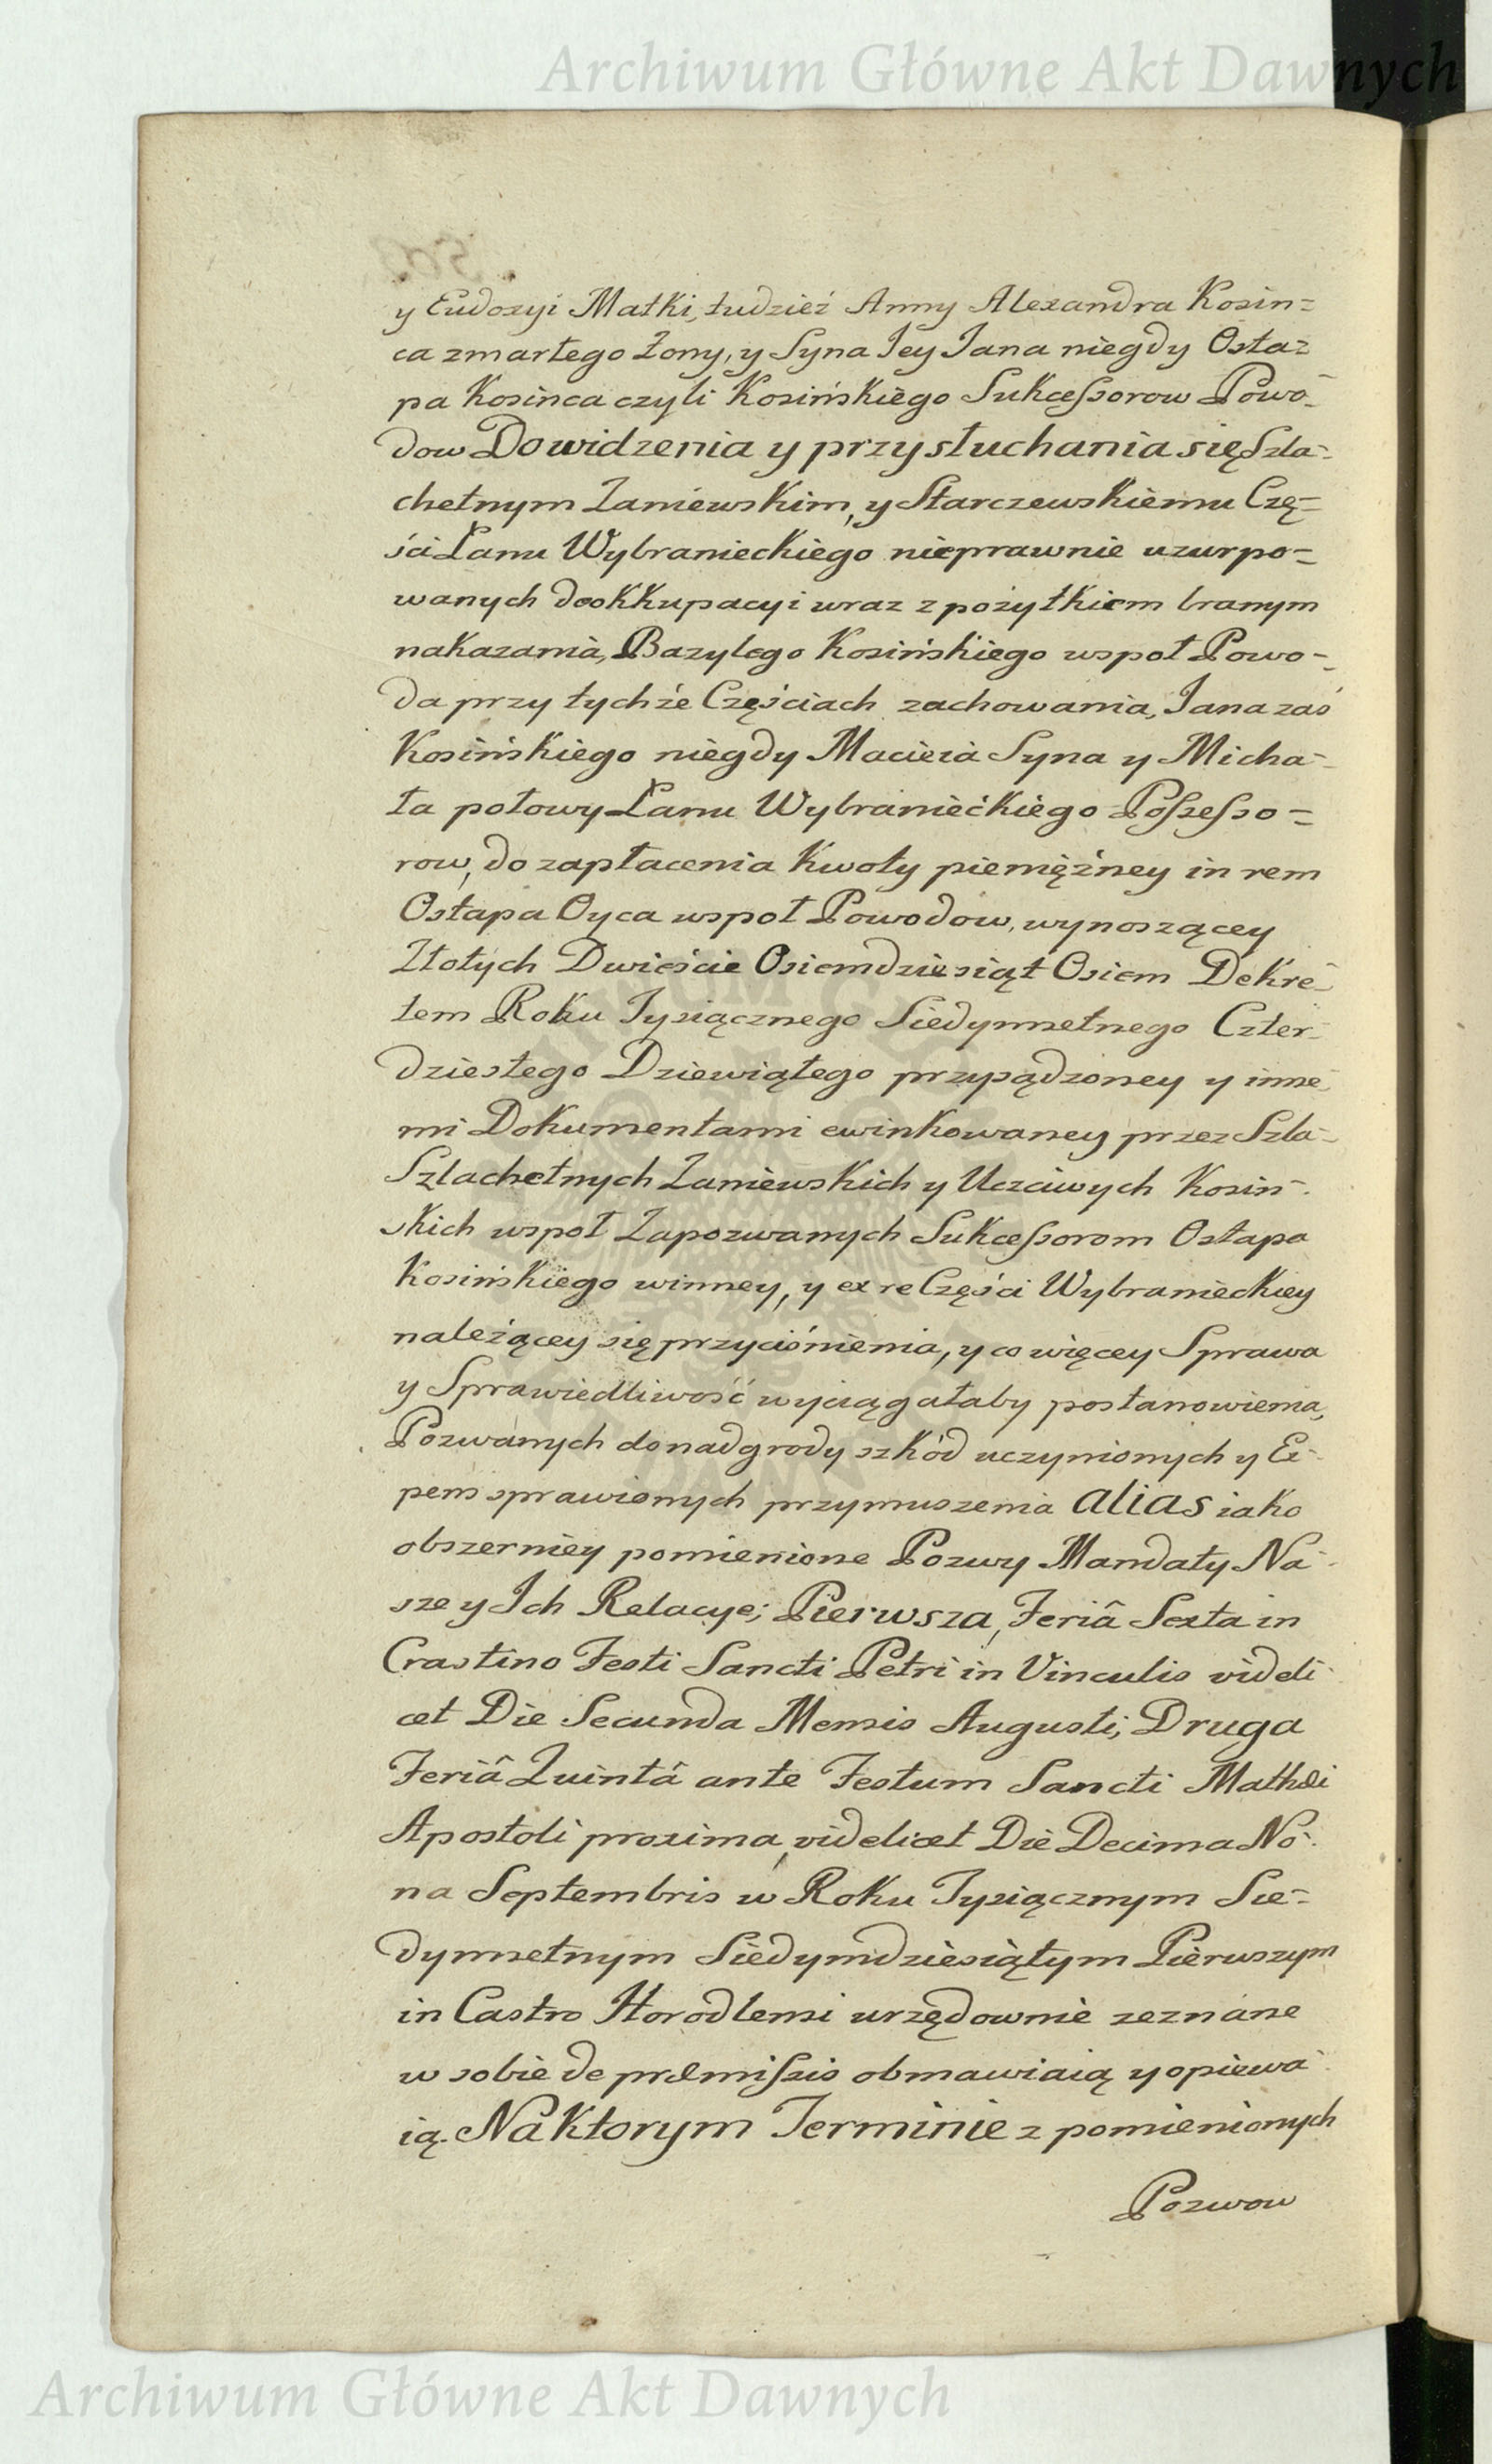 Archiwum Główne Akt Dawnych
y Eudoxyi Matki, tudzież Anny Alexandra Kosin=
ca zmarłego Żony, y Syna Jey Jana niegdy Osta=
pa Kosinca czyli Kosińskiego Sukceſsorow Powo-
dow Do widzenia y przysłuchania się Szla-
chetnym Zaniewskim, y Starczewskiemu Czę=
ści Łanu Wybranieckiego nieprawnie uzurpo=
wanych do okkupacyi wraz z pożytkiem branym
nakazania, Bazylego Kosińskiego wspoł Powo-
da przy tychże Częściach zachowania, Jana zaś
Kosińskiego niegdy Macieia Syna y Micha-
ła połowy Łanu Wybranieckiego Poſseſso=
row, do zapłacenia Kwoty pieniężney in rem
Ostapa Oyca wspoł Powodow, wynoszącey
Złotych Dwieście Osiemdziesiąt Osiem Dekre-
tem Roku Tysiącznego Siedymsetnego Czter-
dziestego Dziewiątego przysądzoney y inne-
mi Dokumentami ewinkowaney przez Szla-
Szlachetnych Zaniewskich y Uczciwych Kosiń-
skich wspoł Zapozwanych Sukceſsorom Ostapa
Kosińskiego winney, y ex re Części Wybranieckiey
należącey się przyciśnienia, y co więcey Sprawa
y Sprawiedliwość wyciągałaby postanowienia,
Pozwanych do nadgrody szkód uczynionych y Ex-
pens sprawionych przymuszenia alias iako
obszerniey pomienione Pozwy Mandaty Na-
sze y Ich Relacye; Pierwsza, Feriâ Sexta in
Crastino Festi Sancti Petri in Vinculis videli-
cet Die Secunda Mensis Augusti; Druga
Feriâ Quintâ ante Festum Sancti Mathæi
Apostoli proxima, videlicet Die Decima No-
na Septembris w Roku Tysiącznym Sie-
dymsetnym Siedymdziesiątym Pierwszym
in Castro Horodlensi urzędownie zeznane
w sobie de præmiſsis obmawiaią y opiewa-
ią. Na Ktorym Terminie z pomienionych
Pozwow
Archiwum Główne Akt Dawnych